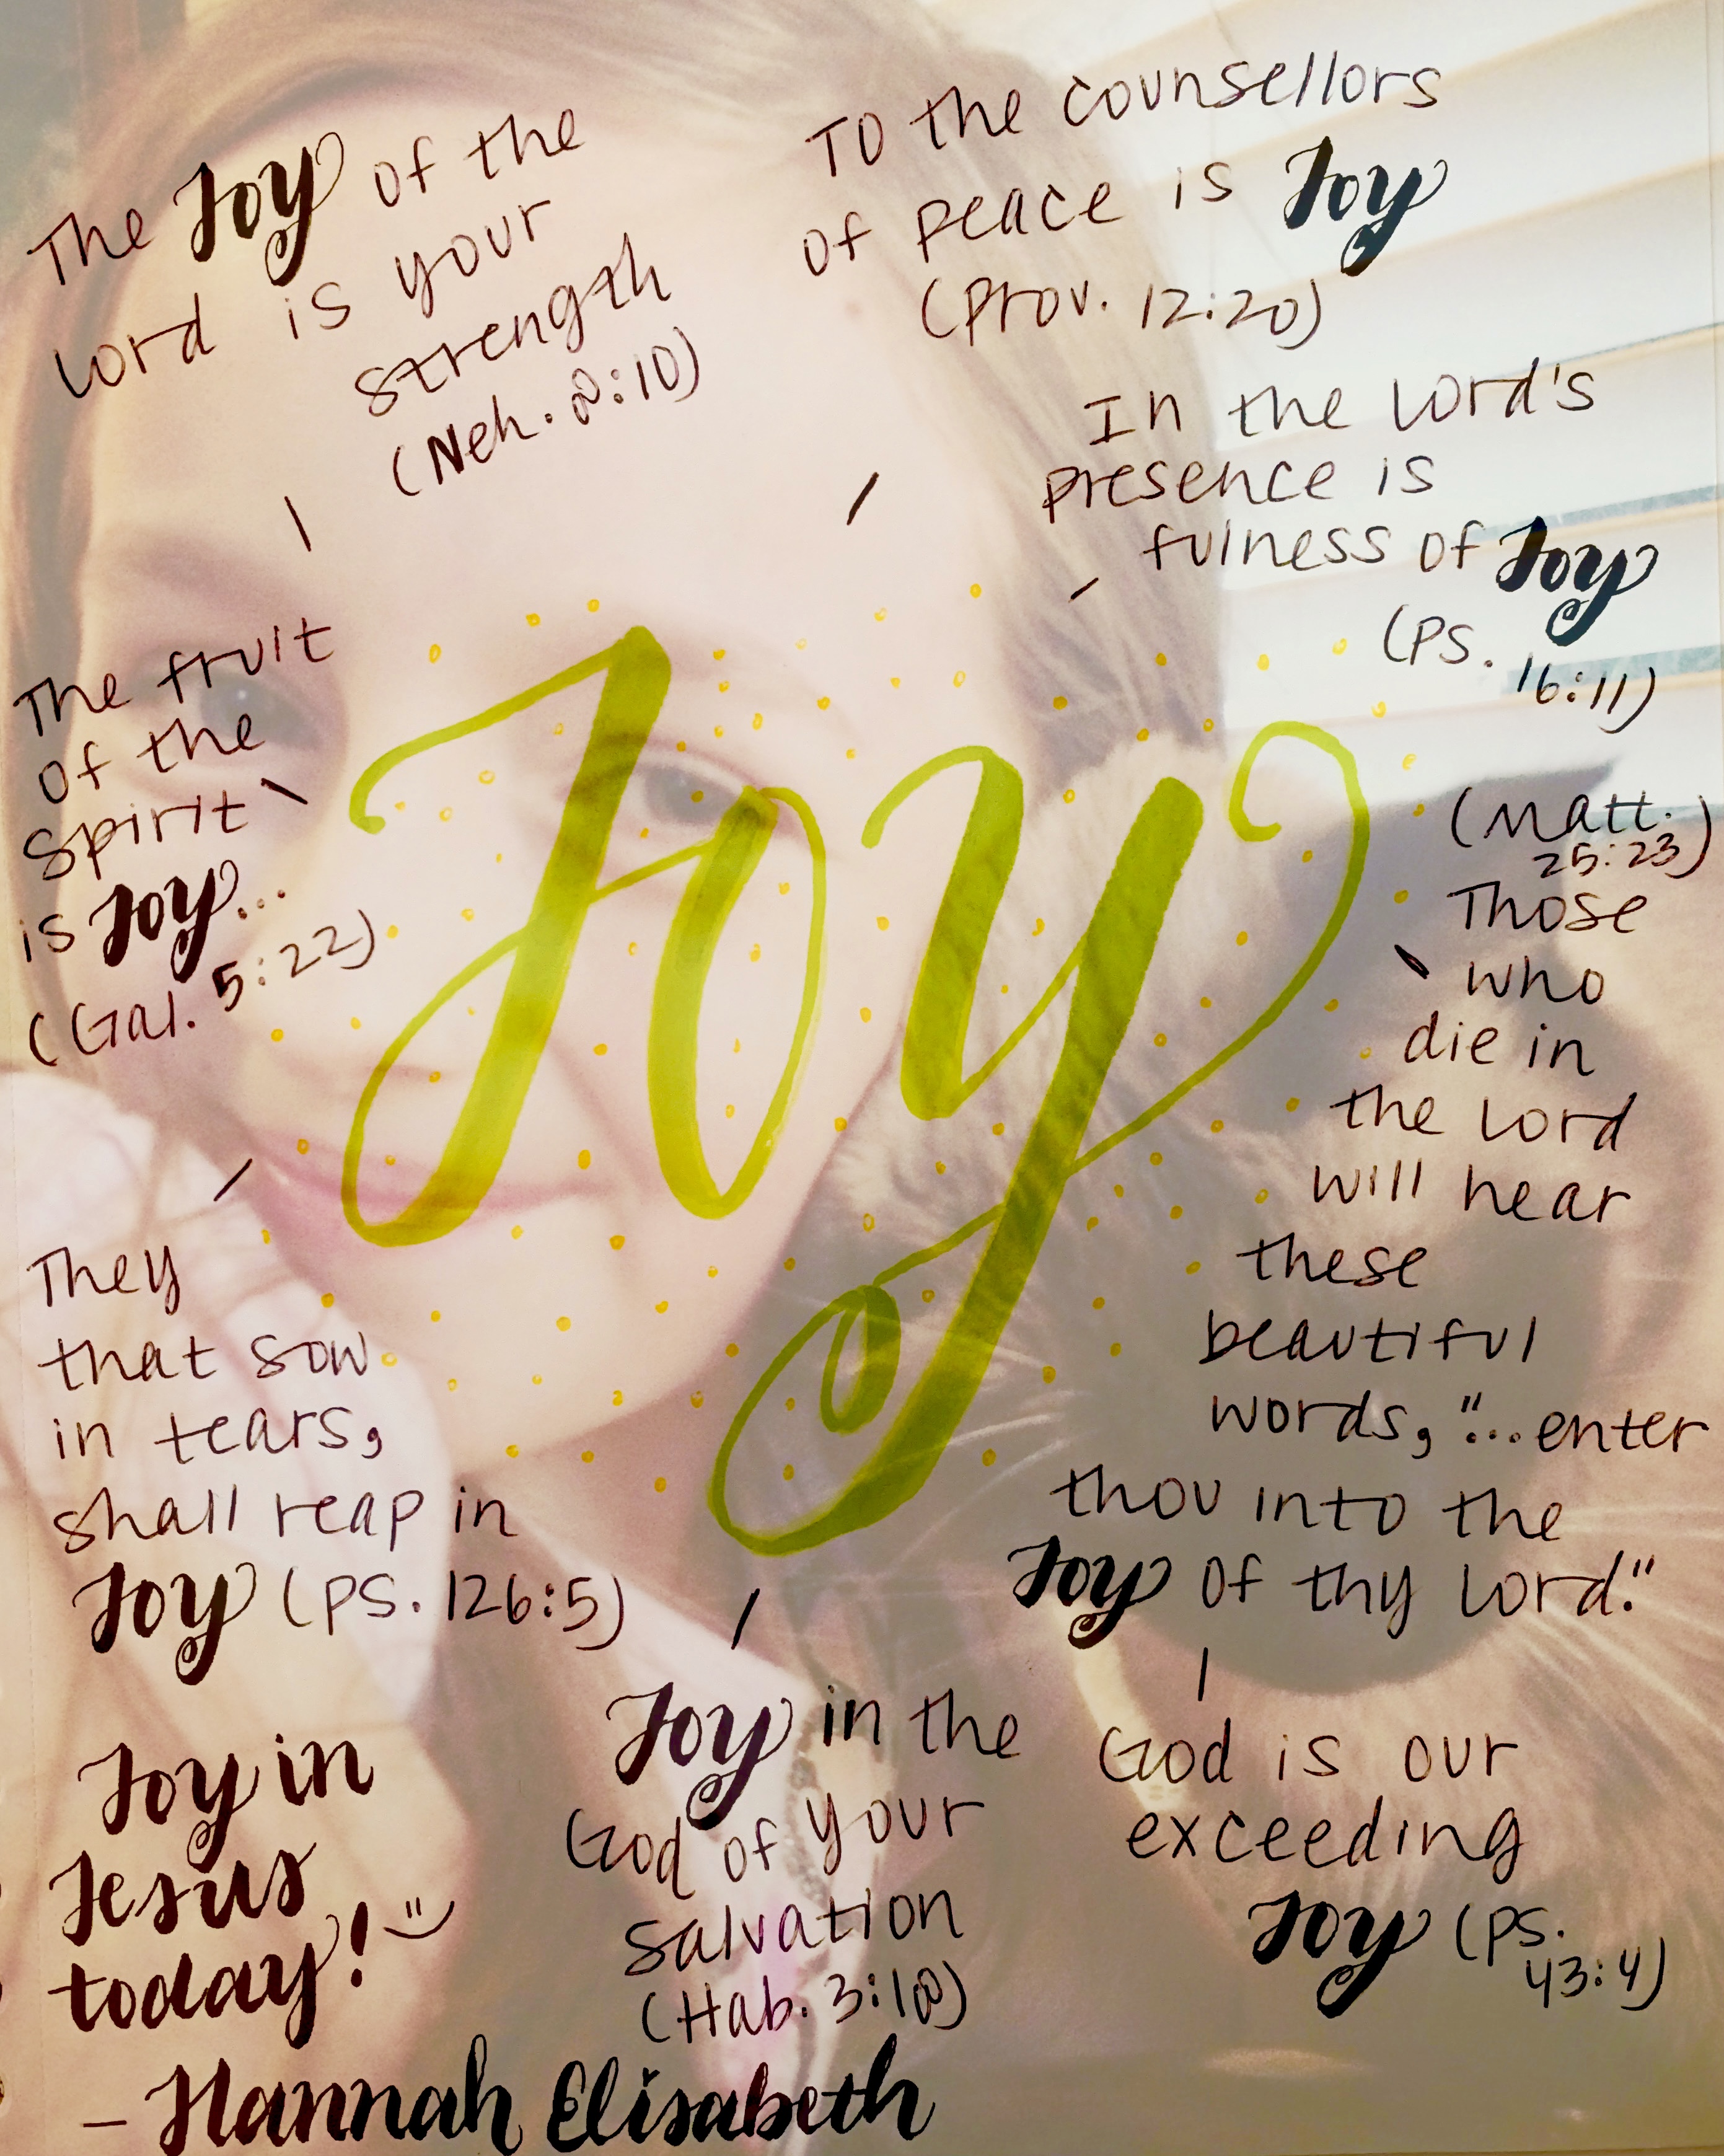 The Joy of the
Lord is your
strength
(Neh. 8:10)
To the counsellors
of peace is Joy
(Prov. 12:20)
In the Lord's
presence is
fulness of Joy
(Ps.
16:11)
The fruit
of the
Spirit
is Joy...
(Gal. 5:22)
Joy
(Matt.
25:23)
Those
who
die in
the Lord
will hear
these
beautiful
words, "...enter
thou into the
Joy of thy Lord."
They
that sow
in tears,
shall reap in
Joy (Ps. 126:5)
Joy in the
God of your
salvation
(Hab. 3:18)
God is our
exceeding
Joy (Ps.
43:4)
Joy in
Jesus
today!
- Hannah Elisabeth